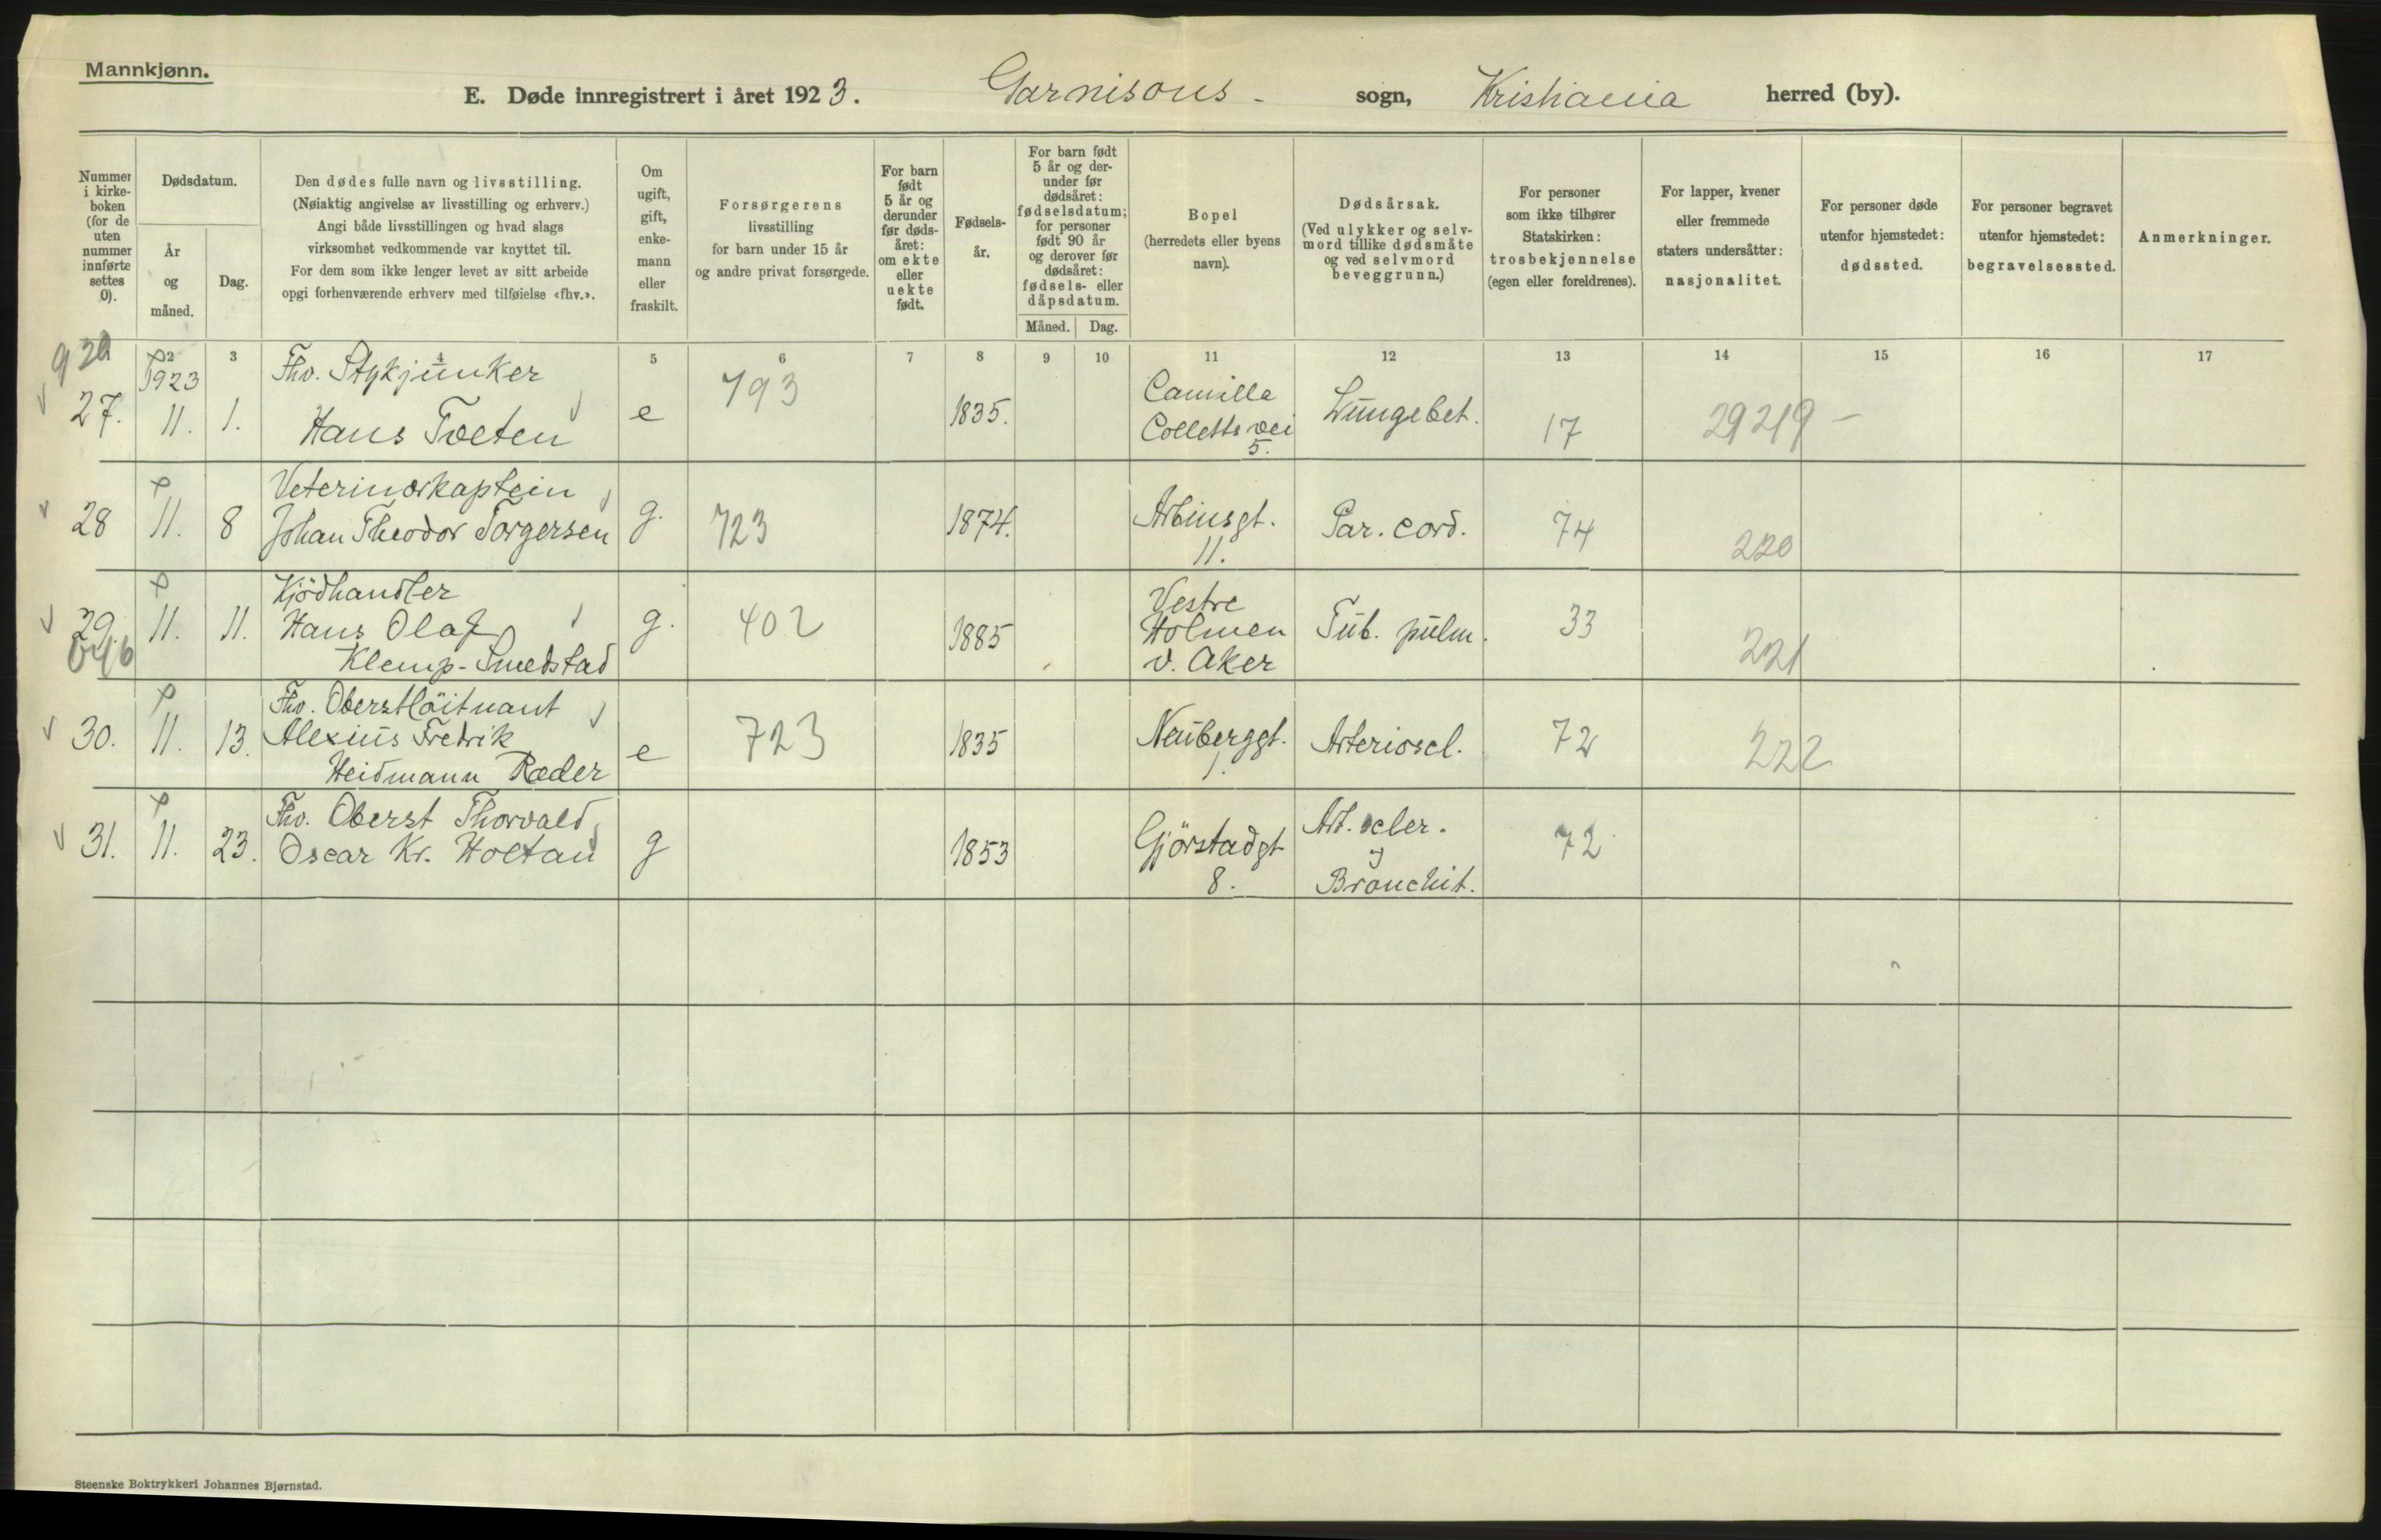 Mannkjønn.
E. Døde innregistrert i året 1923. Garnisons- sogn, Kristiania herred (by).
Nummer i kirke-boken (for de uten nummer innførte settes 0).
Dødsdatum.
År og måned.
Dag.
Den dødes fulle navn og livsstilling.
(Nøiaktig angivelse av livsstilling og erhverv.)
Angi både livsstillingen og hvad slags
virksomhet vedkommende var knyttet til.
For dem som ikke lenger levet av sitt arbeide
opgi forhenværende erhverv med tilføielse «fhv.».
Om ugift, gift, enke-mann eller fraskilt.
Forsørgerens
livsstilling
for barn under 15 år
og andre privat forsørgede.
For barn født 5 år og derunder før døds-året: om ekte eller uekte født.
Fødsels-år.
For barn født 5 år og der-under før dødsåret: fødselsdatum; for personer født 90 år og derover før dødsåret: fødsels- eller dåpsdatum.
Måned.
Dag.
Bopel
(herredets eller byens navn).
Dødsårsak.
(Ved ulykker og selv-mord tillike dødsmåte og ved selvmord beveggrunn.)
For personer som ikke tilhører Statskirken: trosbekjennelse (egen eller foreldrenes).
For lapper, kvener eller fremmede staters undersåtter: nasjonalitet.
For personer døde utenfor hjemstedet: dødssted.
For personer begravet utenfor hjemstedet: begravelsessted.
Anmerkninger.
2 3 4 5 6 7 8 9 10 11 12 13 14 15 16 17
1923
Fhv. Stykjunker
27. 11. 1. Hans Tveten e 793 1835. Camilla Colletts vei 5. Lungebet. 17 29219 -
Veterinærkaptein
28 11. 8 Johan Theodor Torgersen g. 723 1874. Arbinsgt. 11. Par. cord. 74 220
Kjödhandler
29. 11. 11. Hans Olaf g. 402 1885 Vestre Holmen v. Aker Tub. pulm. 33 221
Klemp-Smedstad
Fhv. Oberstlöitnant
30. 11. 13. Alexius Fredrik e 723 1835 Neuberggt. 1. Arterioscl. 72 222
Heidmann Ræder
Fhv. Oberst Thorvald
31. 11. 23. Oscar Kr. Holtan g 1853 Gjörstadgt 8. Art. scler. og Bronchit. 72
Steenske Boktrykkeri Johannes Bjørnstad.